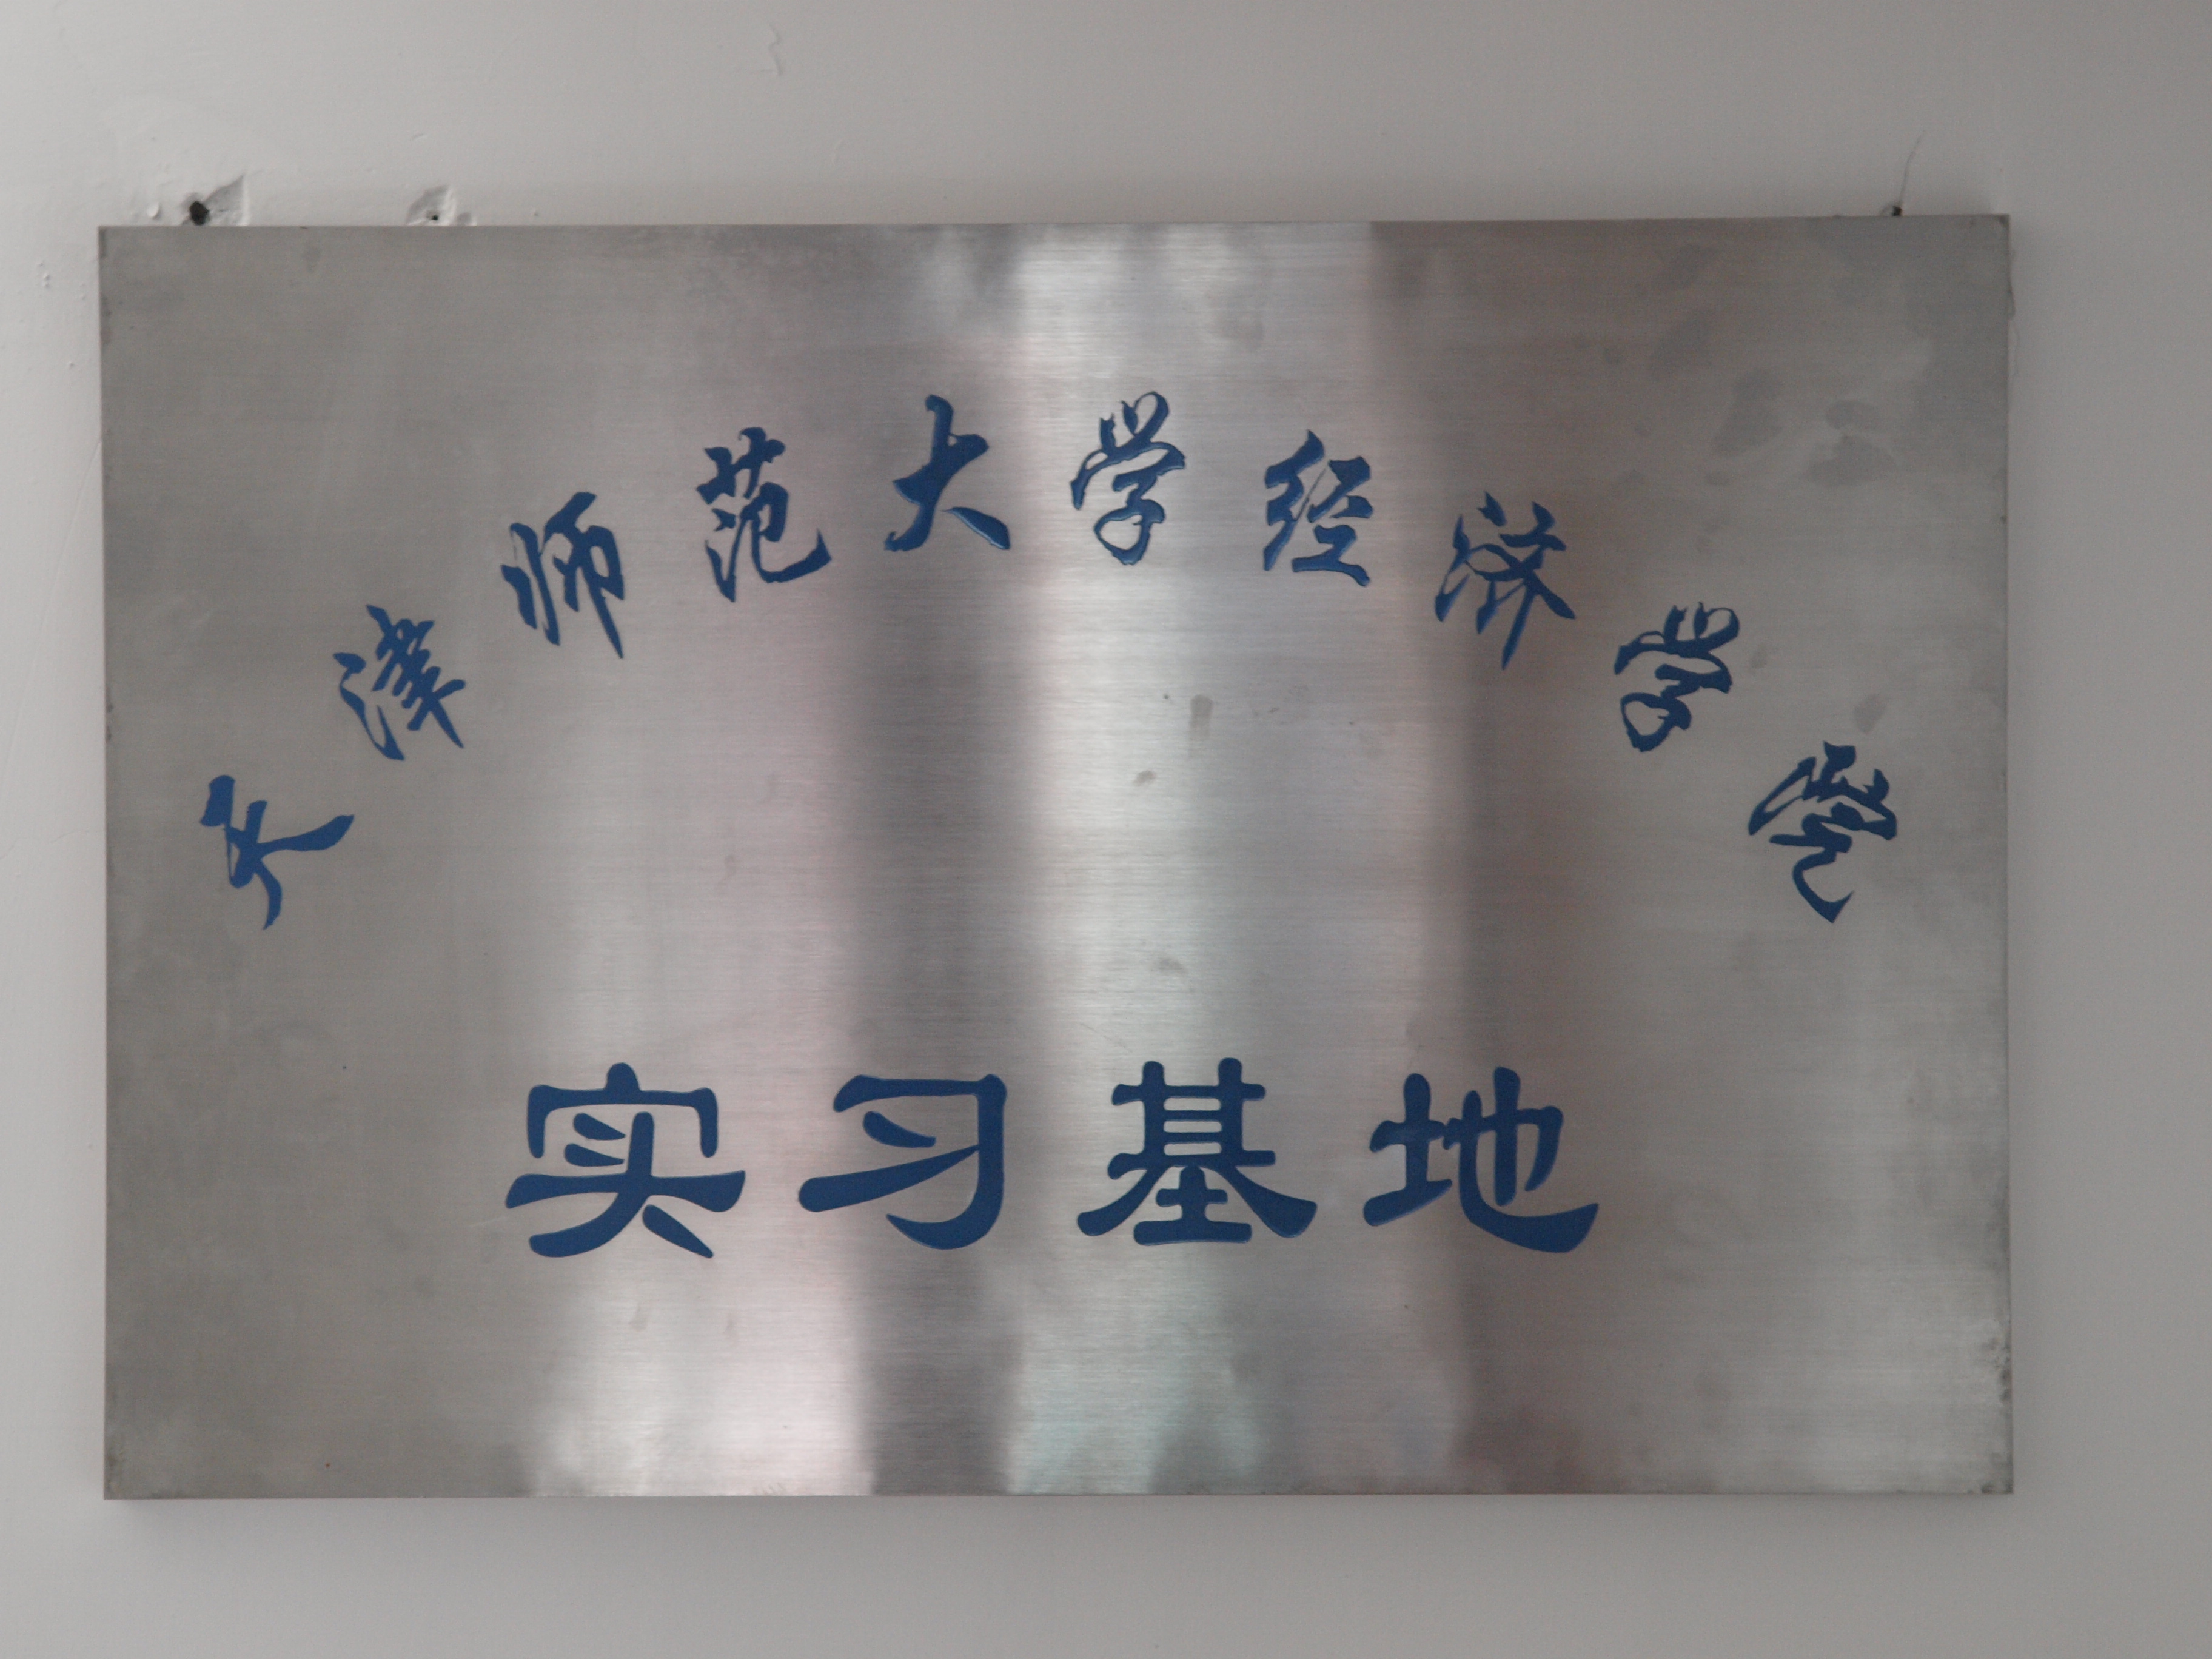 天津师范大学经济学院
实习基地